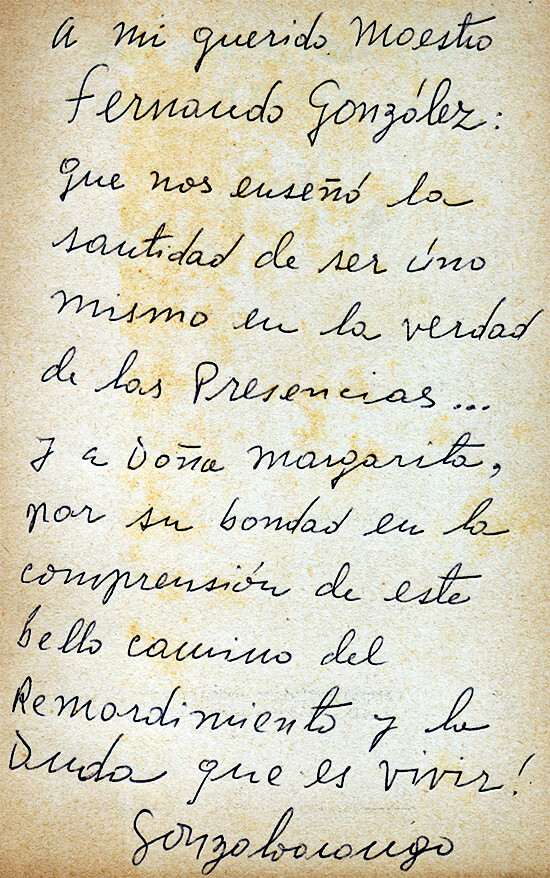 A mi querido Maestro
Fernando González:
que nos enseñó la
santidad de ser úno
mismo en la verdad
de las Presencias...
y a Doña Margarita,
por su bondad en la
comprensión de este
bello camino del
Remordimiento y la
Duda que es vivir!
Gonzaloarango